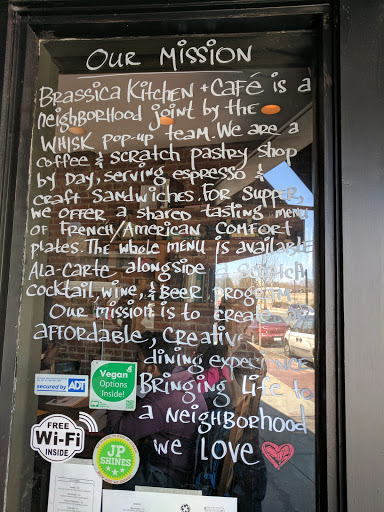 OUR MISSION
BRASSICA KITCHEN + CAFÉ IS A
NEIGHBORHOOD JOINT BY THE
WHISK POP-UP TEAM. WE ARE A
COFFEE & SCRATCH PASTRY SHOP
BY DAY, SERVING ESPRESSO &
CRAFT SANDWICHES. FOR SUPPER,
WE OFFER A SHARED TASTING MENU
OF FRENCH/AMERICAN COMFORT
PLATES. THE WHOLE MENU IS AVAILABLE
ALA-CARTE, ALONGSIDE A SCRATCH
COCKTAIL, WINE, & BEER PROGRAM.
OUR MISSION IS TO CREATE
AFFORDABLE, CREATIVE
DINING EXPERIENCE
BRINGING LIFE TO
A NEIGHBORHOOD
WE LOVE
Vegan
Options
Inside!
secured by ADT
FREE
Wi-Fi
INSIDE
JP
SHINES